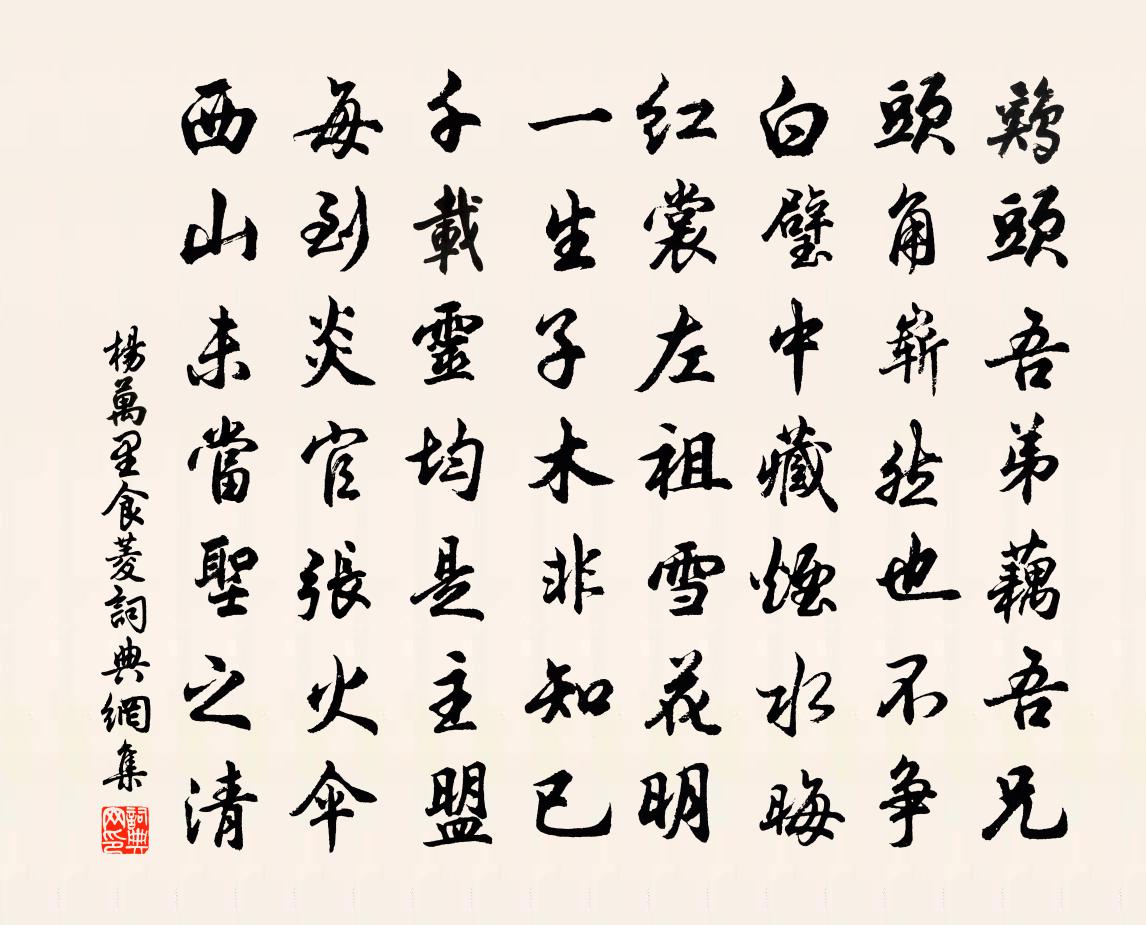 鷄頭吾弟藕吾兄
頭角嶄然也不爭
白璧中藏煙水晦
紅裳左袒雪花明
一生子木非知已
千載靈均是主盟
每到炎官張火傘
西山未當聖之清
楊萬里食菱詞典網集
詞典网印